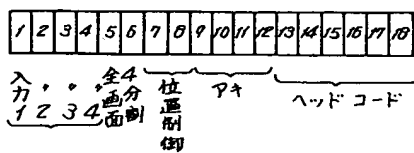 1 2 3 4 5 6 7 8 9 10 11 12 13 14 15 16 17 18
入力1 〃2 〃3 〃4 全画面 4分割 位画制御 アキ ヘッドコード